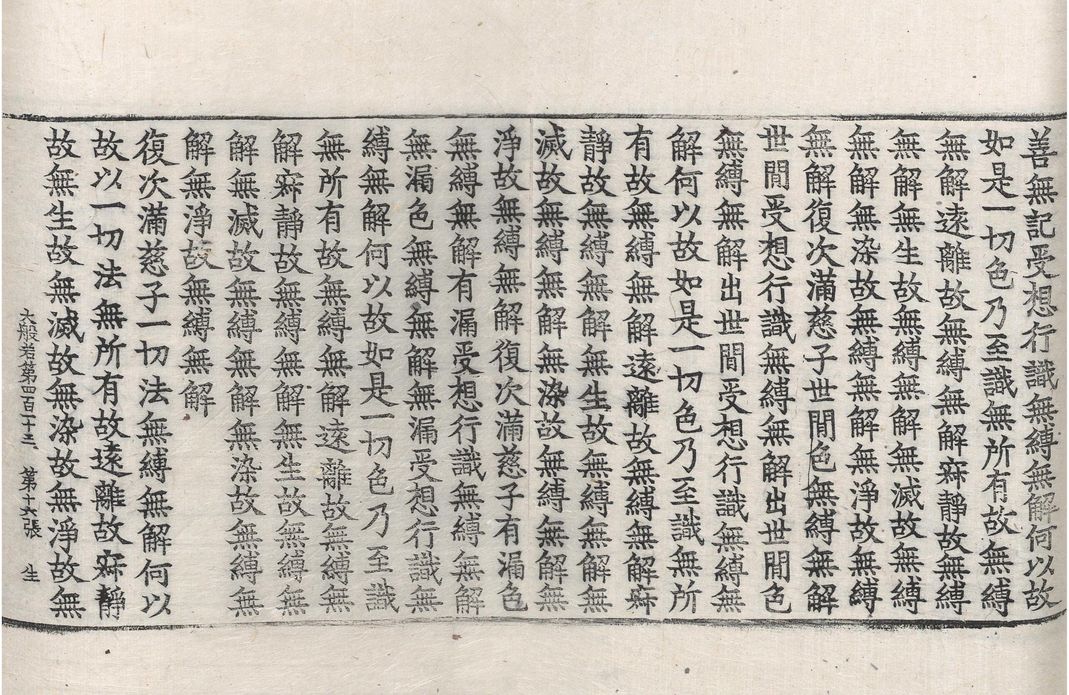 善無記受想行識無縛無解何以故
如是一切色乃至識無所有故無縛
無解遠離故無縛無解寂靜故無縛
無解無生故無縛無解無滅故無縛
無解無染故無縛無解無淨故無縛
無解復次滿慈子世閒色無縛無解
世閒受想行識無縛無解出世閒色
無縛無解出世閒受想行識無縛無
解何以故如是一切色乃至識無所
有故無縛無解遠離故無縛無解寂
靜故無縛無解無生故無縛無解無
滅故無縛無解無染故無縛無解無
淨故無縛無解復次滿慈子有漏色
無縛無解有漏受想行識無縛無解
無漏色無縛無解無漏受想行識無
縛無解何以故如是一切色乃至識
無所有故無縛無解遠離故無縛無
解寂靜故無縛無解無生故無縛無
解無滅故無縛無解無染故無縛無
解無淨故無縛無解
復次滿慈子一切法無縛無解何以
故以一切法無所有故遠離故寂靜
故無生故無滅故無染故無淨故無
大般若第四百十三 第十六張 生